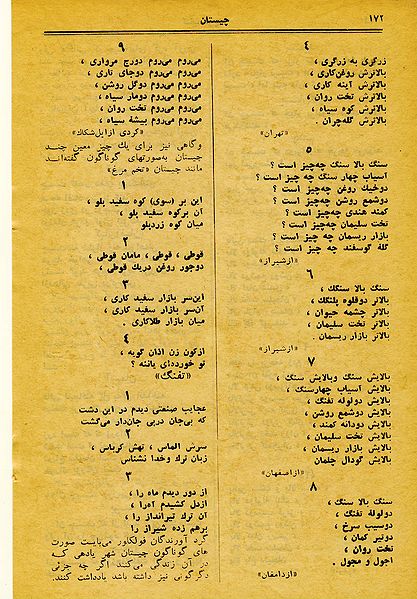 ۱۷۲
چیستان
۴
زرگری به زرگری ،
بالاترش روغن‌کاری ،
بالاترش آینه کاری ،
بالاترش تخت روان ،
بالاترش کوه سیاه ،
بالاترش گله‌چران .
«تهران»
۵
سنگ بالا سنگ چه‌چیز است ؟
آسیاب چهار سنگ چه چیز است ؟
دوخیک روغن چه‌چیز است ؟
دوشمع روشن چه‌چیز است ؟
کمند هندی چه‌چیز است ؟
تخت سلیمان چه‌چیز است ؟
بازار ریسمان چه چیز است ؟
گلهٔ گوسفند چه چیز است ؟
«ازشیراز»
۶
سنگ بالا سنگك ،
بالاتر دوقلوه پلنگك ،
بالاتر چشمه حیوان ،
بالاتر تخت سلیمان ،
بالاتر بازار ریسمان .
«ازشیراز»
۷
بالایش سنگ وبالایش سنگ ،
بالایش آسیاب چهارسنگ ،
بالایش دولوله تفنگ ،
بالایش دوشمع روشن ،
بالایش دودانه کمند ،
بالایش تخت سلیمان ،
بالایش بازار ریسمان ،
بالایش گودال چلمان
«ازاصفهان»
۸
سنگ بالا سنگ ،
دولولهٔ تفنگ ،
دوسیب سرخ ،
دوتیر کمان ،
تخت روان ،
اجول و مجول .
«ازدامغان»
۹
می‌روم می‌روم دورج مرواری ،
می‌روم می‌روم دوچای تاری ،
می‌روم می‌روم دوگل روشن ،
می‌روم می‌روم دومار سیاه ،
می‌روم می‌روم تخت روان ،
می‌روم می‌روم بیشهٔ سیاه ،
«کردی ازایل‌شکاك»
وگاهی نیز برای یك چیز معین چند
چیستان به‌صورتهای گوناگون گفته‌اند
مانند چیستان «تخم مرغ»
۱
این بر (سوی) کوه سفید پلو ،
آن برکوه سفید پلو ،
میان کوه زردپلو
۲
قوطی ، قوطی ، مامان قوطی ،
دوجور روغن دریك قوطی ،
۳
این‌سر بازار سفید کاری ،
آن‌سر بازار سفید کاری ،
میان بازار طلاکاری .
۴
ازکون زن اذان گویه ،
تو خورده‌ای یاننه ؟
«تفنگ»
۱
عجایب صنعتی دیدم در این دشت
که بی‌جان درپی جان‌دار می‌گشت
۲
سرش الماس ، تهش کرباس ،
زبان ترك وخدا نشناس
۳
از دور دیدم ماه را ،
ازدل کشیدم آه‌را ،
آن ترك تیرانداز را ،
برهم زده شیراز را
گرد آورندگان فولکلور می‌بایست صورت
های گوناگون چیستان شهر یادهی که
در آن زندگی می‌کنند اگر چه جزئی
دگرگونی نیز داشته باشد یادداشت کنند.